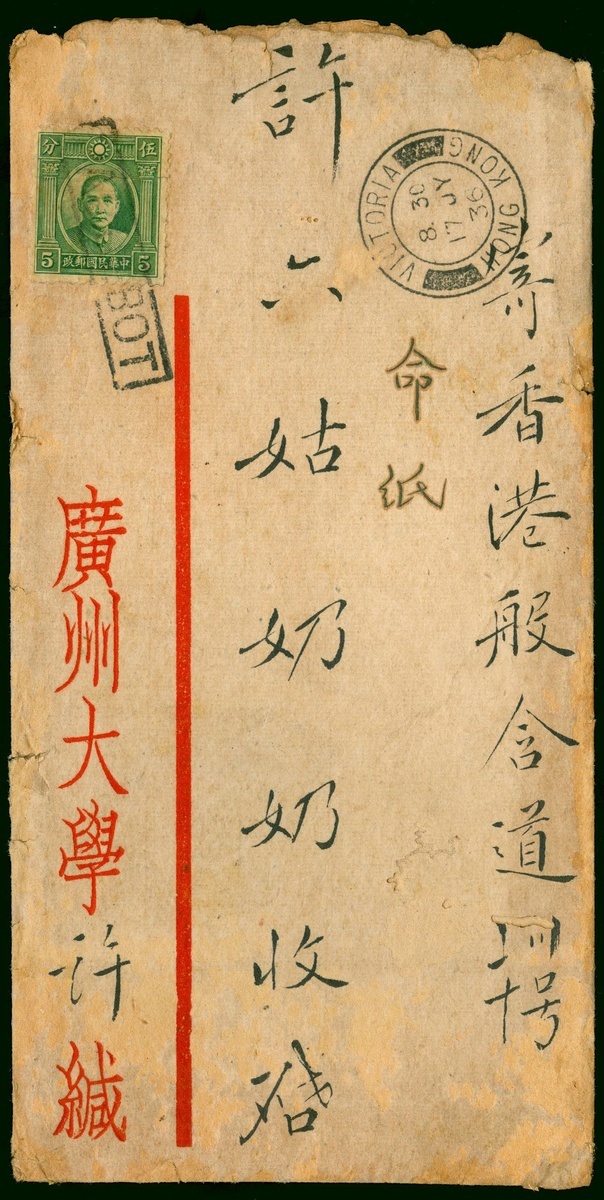 寄香港般含道
十号
命
紙
許六姑奶奶收啓
廣州大學許緘
伍分
5 5
中華民國郵政
BOT
VICTORIA
HONG KONG
8.30
17 JY
36